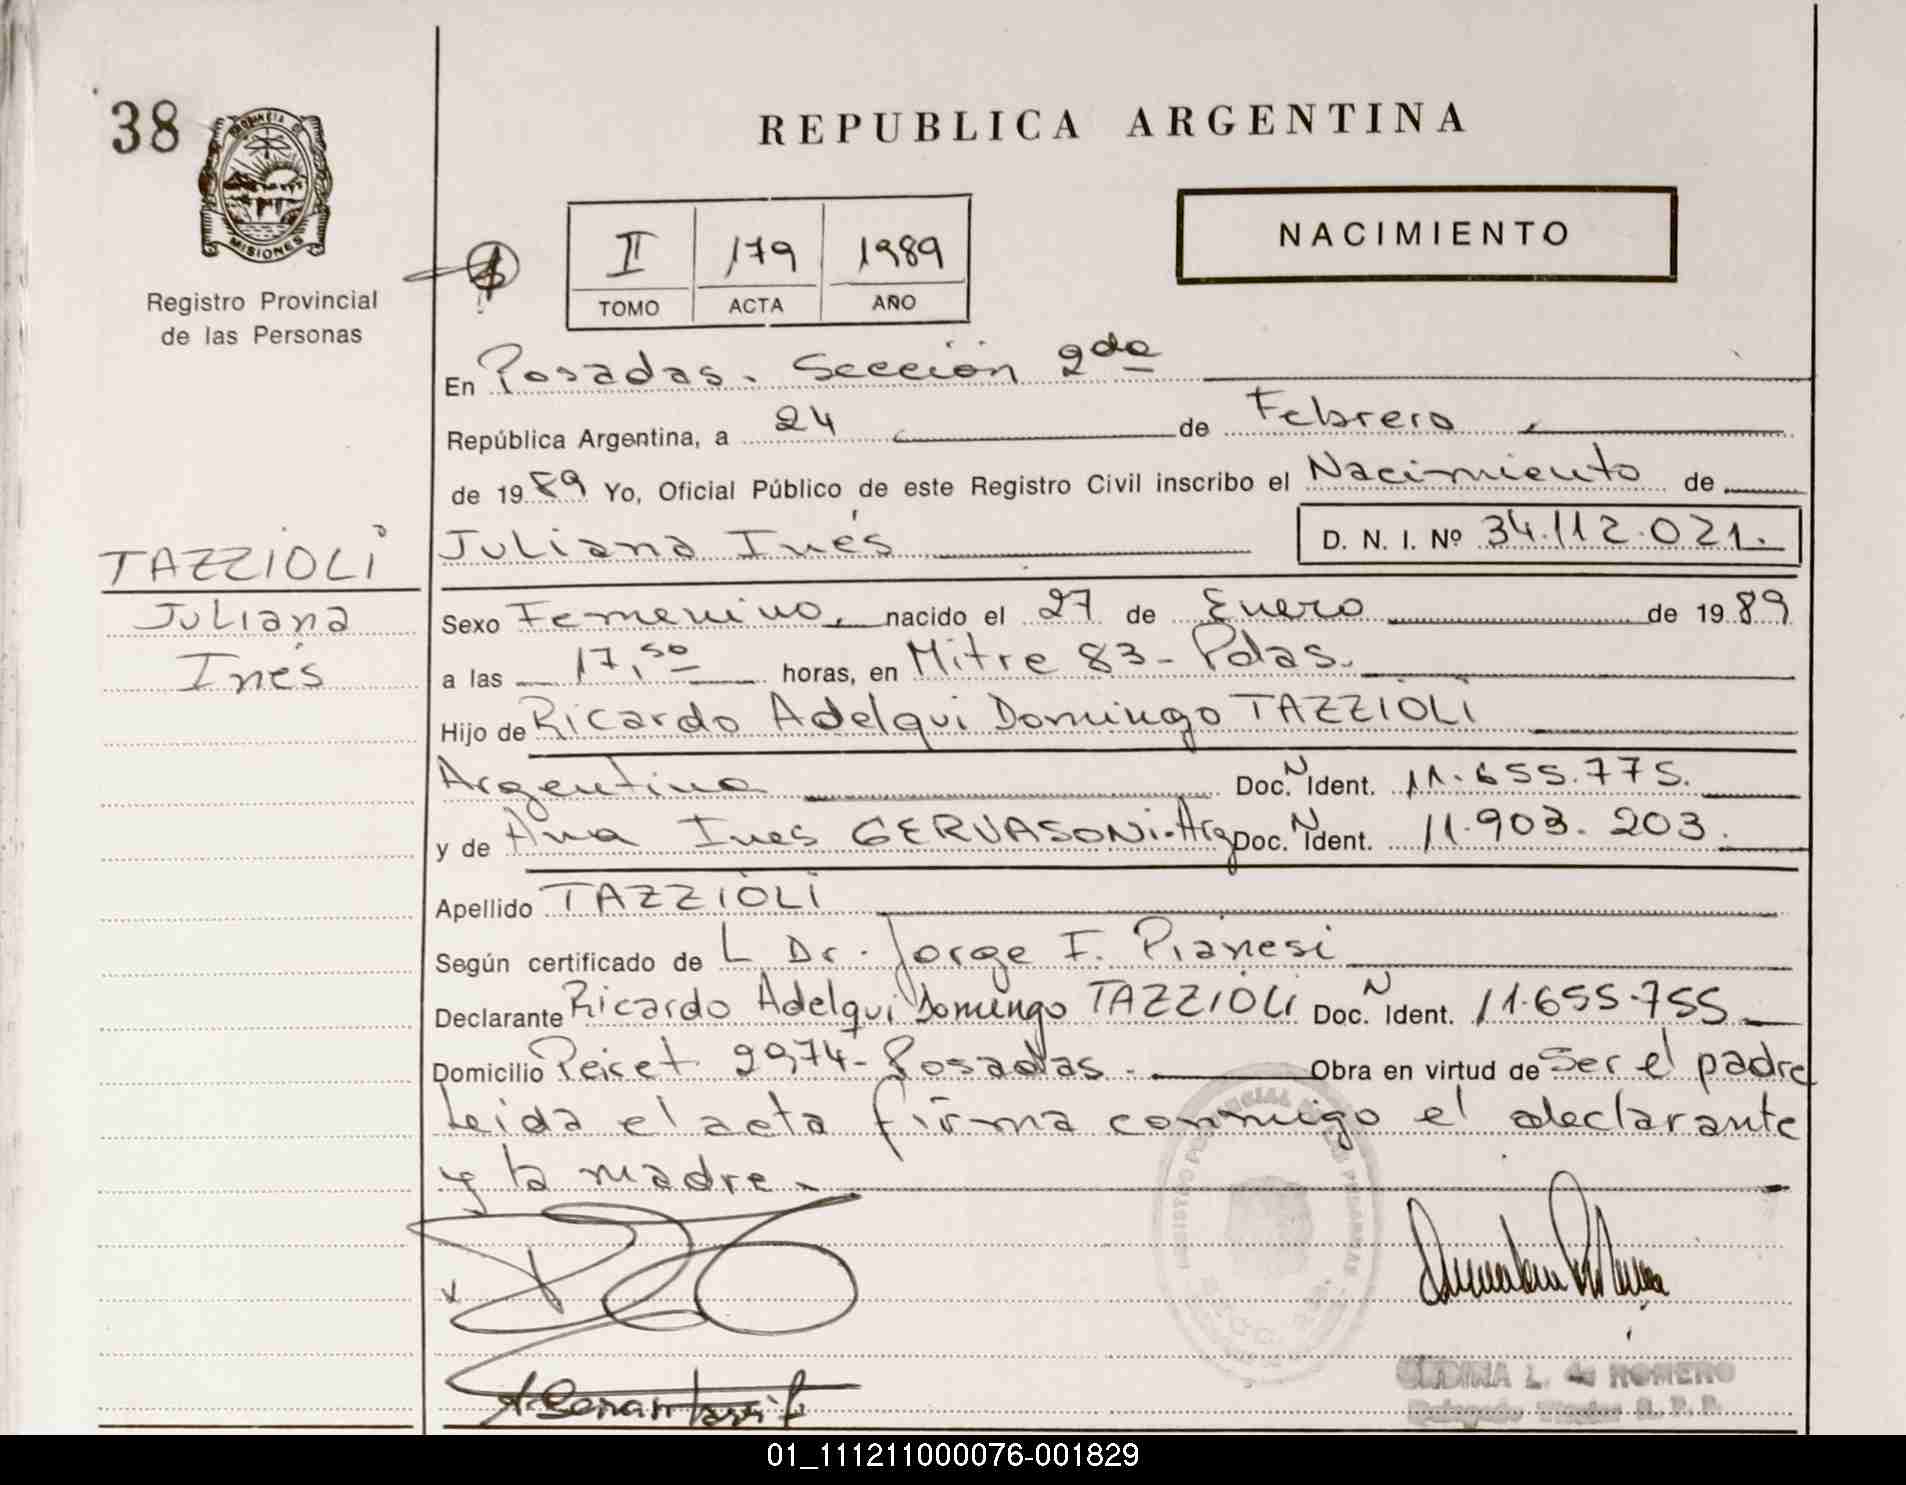 38
PROVINCIA DE
MISIONES
Registro Provincial
de las Personas
REPUBLICA ARGENTINA
NACIMIENTO
II 179 1989
TOMO ACTA AÑO
En Posadas. Sección 2da
República Argentina, a 24 de Febrero
de 1989 Yo, Oficial Público de este Registro Civil inscribo el Nacimiento de
Juliana Inés D. N. I. Nº 34.112.021.
TAZZIOLI
Juliana
Inés
Sexo Femenino, nacido el 27 de Enero de 1989
a las 17,50 horas, en Mitre 83 - Pdas.
Hijo de Ricardo Adelqui Domingo TAZZIOLI
Argentino Doc. N Ident. 11.655.775.
y de Ana Ines GERVASONI-Arg Doc. N Ident. 11.903.203.
Apellido TAZZIOLI
Según certificado de L Dr. Jorge F. Pianesi
Declarante Ricardo Adelqui Domingo TAZZIOLI Doc. N Ident. 11.655.755
Domicilio 2974 - Posadas. Obra en virtud de Ser el padre
Leida el acta firma conmigo el declarante
y la madre.
L. de ROMERO
01_111211000076-001829